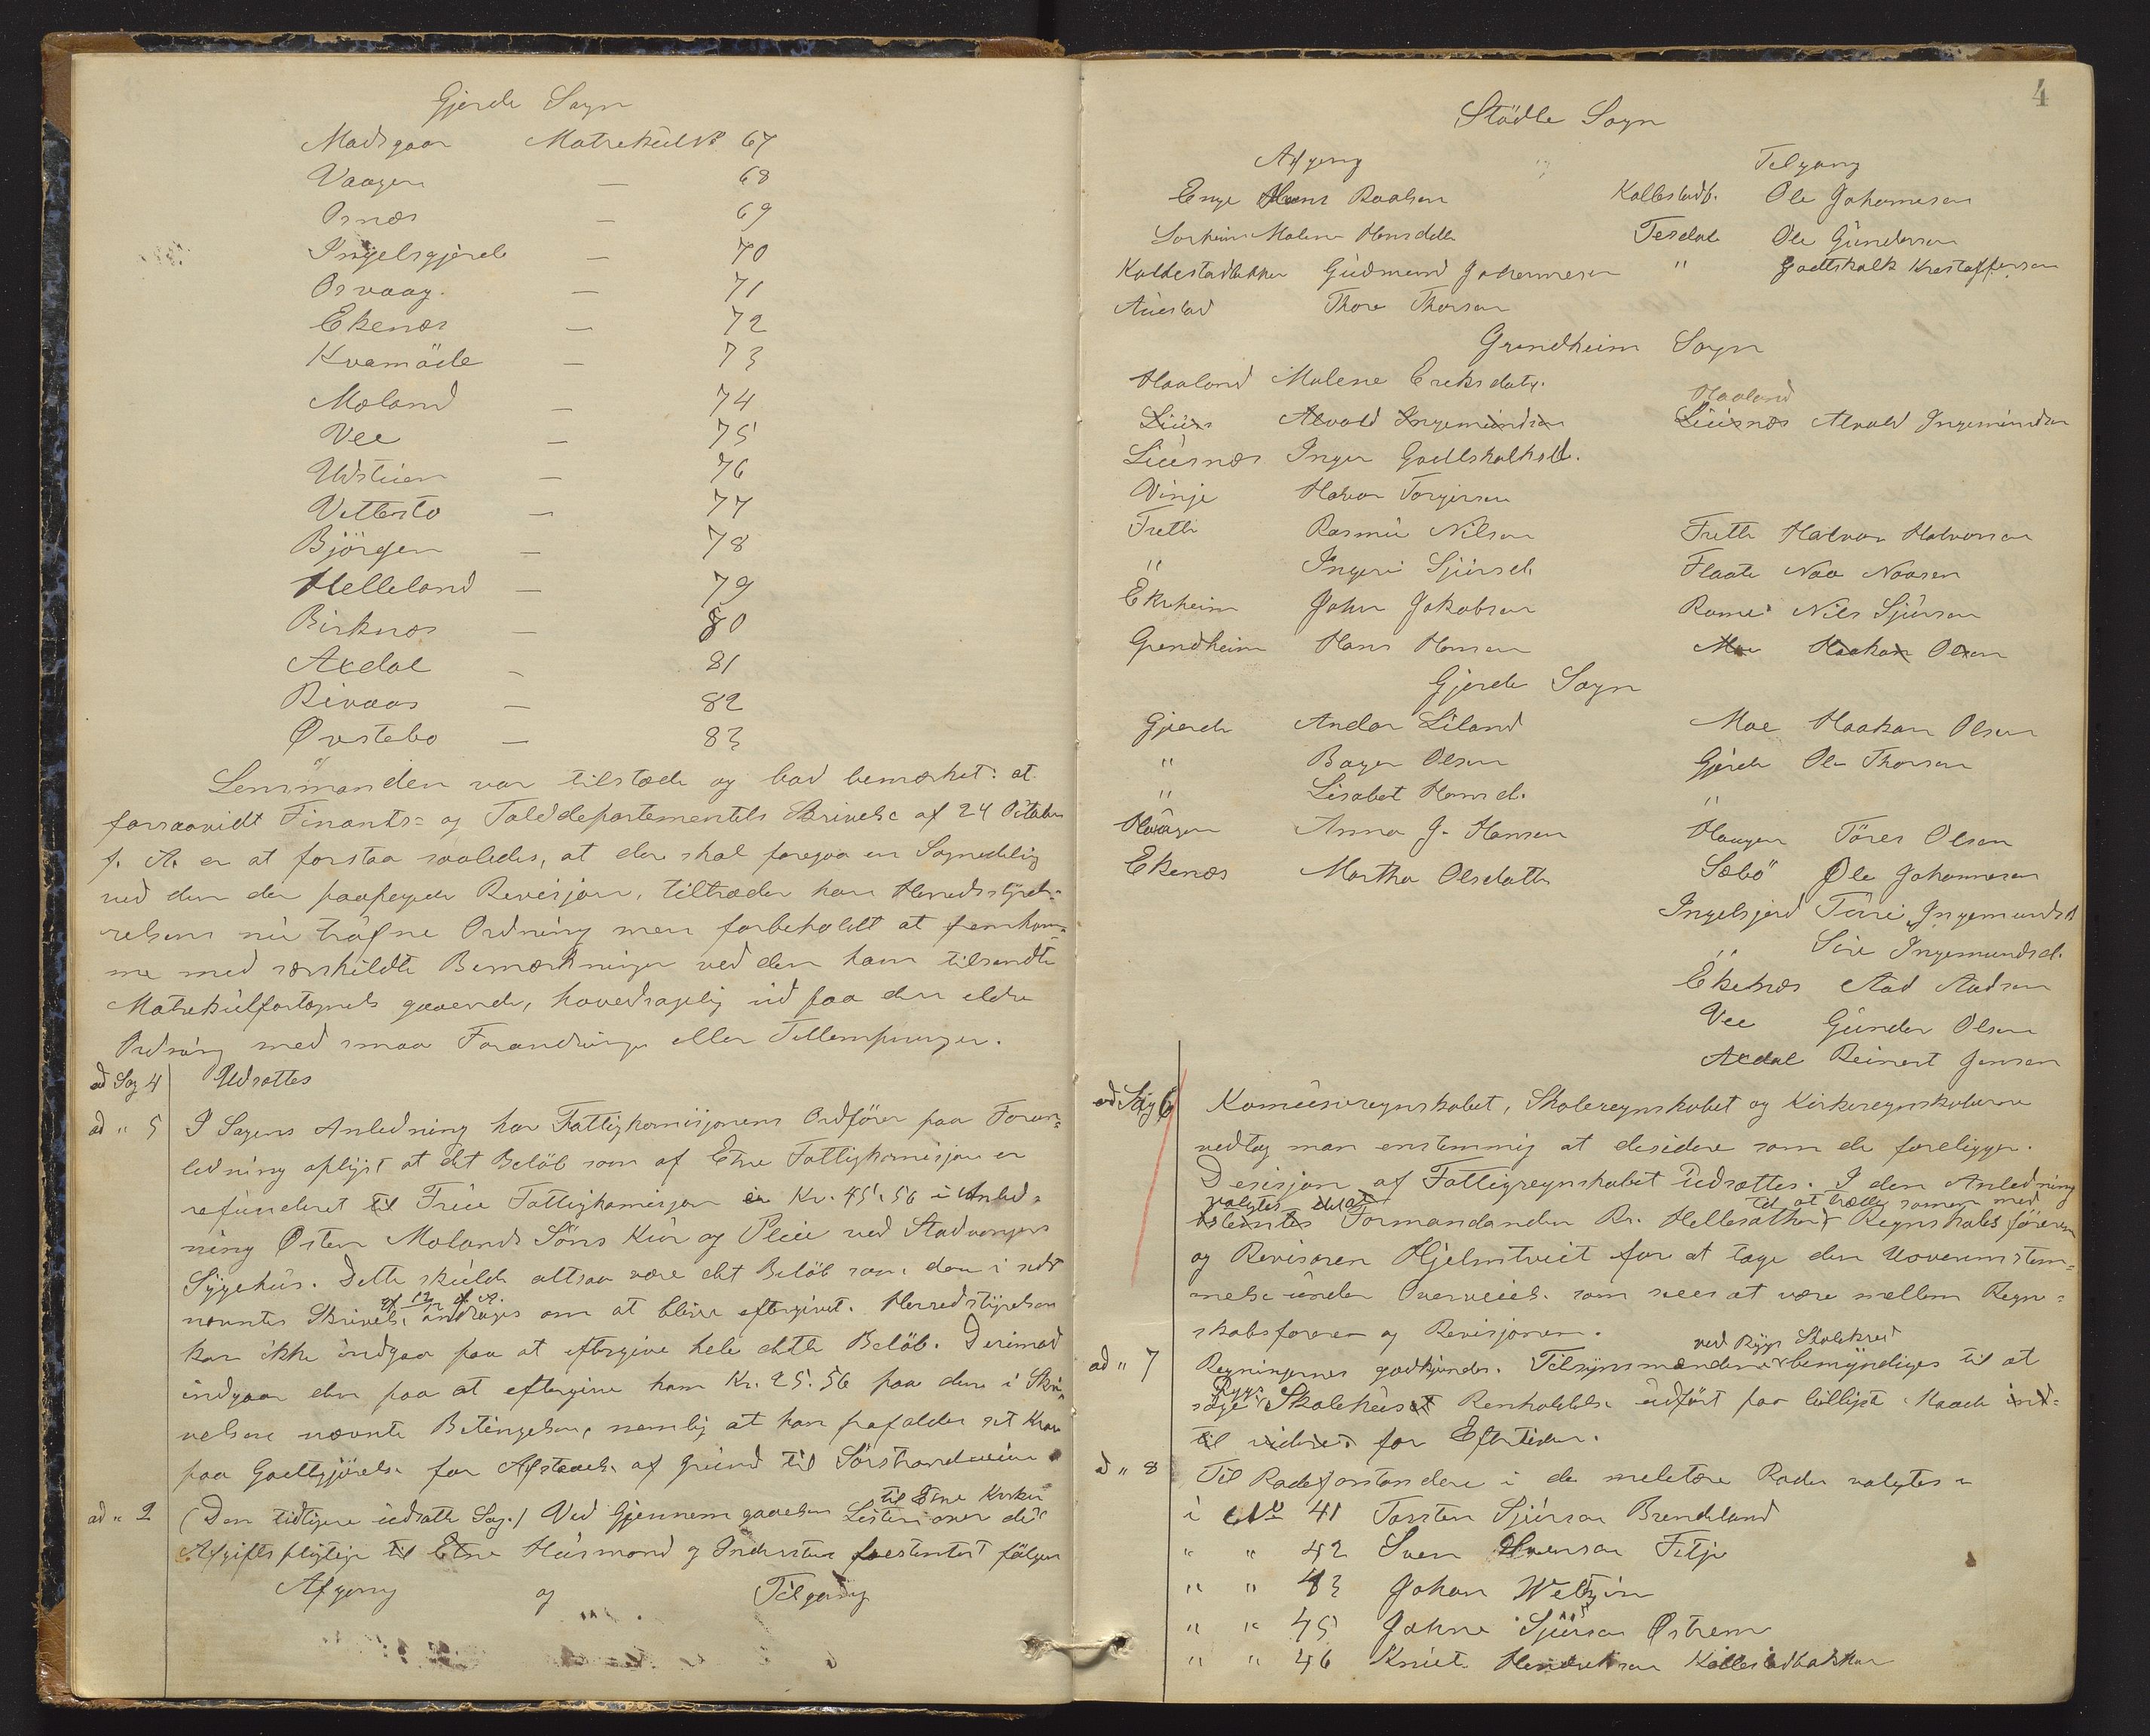 Gjerde Sogn
Madsgaar Matrekül No 67
Vaagen — 68
Osnæs — 69
Ingelsgjerde — 70
Osvaag — 71
Ekenæs — 72
Kvamöde — 73
Moland — 74
Vee — 75
Udstüen — 76
Vettestø — 77
Bjørgen — 78
Helleland — 79
Birknæs — 80
Axdal — 81
Rivaas — 82
Øvstebø — 83
Lensmanden var tilstæde og bad bemærket: at
forsaavidt Finants- og Tolddepartementets Skrivelse af 24 Oktober
f. A. er at forstaa saaledes, at der skal foregaa en Sognedeling
ved den der paapegede Revisjon, tiltræder han Herredssty-
relsens nü trüfne Ordning men forbeholdt at fremkom-
me med særskildte Bemærkninger ved den ham tilsendte
Matrekülfortegnelse gaaende, hovedsagelig üd paa den eldre
Ordning med smaa Forandringer eller Tillempninger.
ad Sag 4 Udsattes
ad " 5 I Sagens Anledning har Fattigkomisjonens Ordfører paa Foran-
ledning oplyst at det Beløb som af Etne Fattigkomisjon er
refünderet til Freüe Fattigkomisjon er Kr. 45.56 i Anled-
ning Østen Molands Søns Kür og Pleie ved Stadvangers
Sygehüs. Dette skülde altsaa være det Beløb som den i sidst
nævnte Skrivelse af 12 andrages om at blive eftergivet. Herredstyrelsen
kan ikke indgaa paa at eftergive hele dette Beløb. Derimod
indgaar den paa at eftergive ham Kr. 25.56 paa den i Skri-
velsen nævnte Betingelse, nemlig at han frafalder sit Krav
paa Godtgjørelse for Afstaaelse af Gründ til Sørstrandveien
ad " 2 (Den tidligere üdsatte Sag.) Ved Gjennemgaaelsen Listen over de til Etne Kirke
Afgiftspligtige til Etne Hüsmænd og Inderster følger
Afgang og Tilgang
4
Städle Sogn
Afgang Tilgang
Enge Hans Paalsen Kallestadb. Ole Johannesen
Sørheim Malene Hansdatter Tesdal Ole Gündersen
Kaldestadbakken Güdmund Johannesen " Godtskalk Kristoffersen
Aüestad Thore Thorsen
Grendheim Sogn
Haaland Malene Eriksdatr.
Liüsn Alvald Ingemündsen Haaland Liüsnæs Alvald Ingemündsen
Liüsnæs Inger Godtskalksd.
Vinje Halvor Torgersen
Frette Rasmüs Nilsen Frette Halvor Halvorsen
" Ingeri Sjürsd. Flaate Noa Noasen
Ekrheim John Jakobsen Rame Nils Sjürsen
Grendheim Hans Hansen Moe Haakon Olsen
Gjerde Sogn
Gjerde Andor Liland Moe Haakon Olsen
" Olsen Gjerde Ole Thorsen
" Lisabet Hansd. "
Haügen Anna J. Hansen Haugen Töres Olsen
Ekenæs Martha Olsdatter Sæbö Ole Johannesen
Ingelsgjerd Türi Ingemundsd.
" Siri Ingemundsd.
Ekenæs Aad Aadsen
Vee Günder Olsen
Axdal Reinert Jensen
ad Sag 6 Komünereynskabet, Skoleregnskabet og Kirkeregnskaberne
vedtog man enstemmig at desidere som de foreligger.
Desisjon af Fattigregnskabet üdsattes. I den Anledning
valgtes Formandanden Kr. Hellesather til at trælle samen med Regnskabsføreren
og Revisoren Hjelmtveit for at tage den Uoverenstem-
melse ünder Overveielse som siees at være mellem Regn-
skabsføreren og Revisjonen.
ad " 7 Regningernes godkjendes. Tilsynsmændene ved Rygs Skolekred bemyndiges til at
søge Rygs Skolehüs Renholdelse üdført paa billigste Maade ind-
til videre for Eftertiden.
ad " 8 Til Rodeforstandere i de meletære Roder valgtes:
i No 41 Torsten Sjürsen Brendeland
" " 42 Sven Svensen Fitje
" " 43 Johan Weltzin
" " 45 Johne Sjürsen Østrem
" " 46 Knüt Hendriksen Kallestadbakken